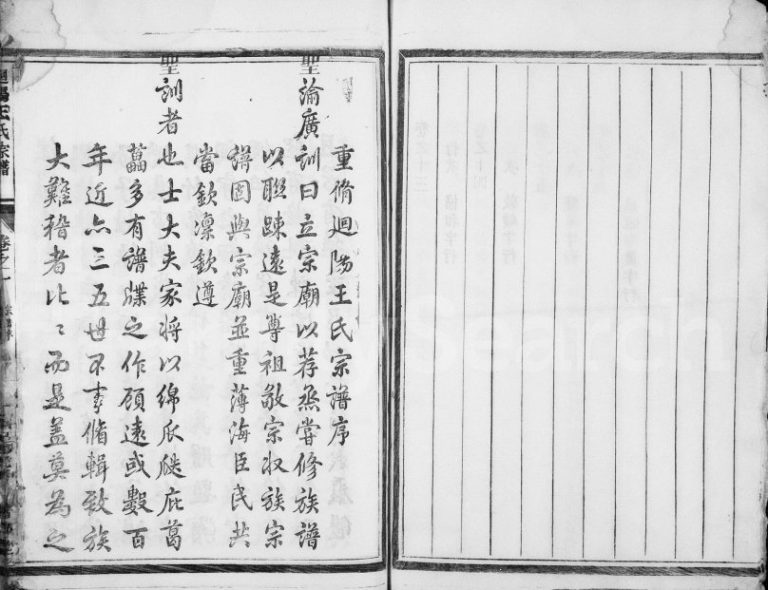 重脩迴隝王氏宗譜序
聖諭廣訓曰立宗廟以荐烝嘗修族譜
以聯踈遠是尊祖敬宗收族宗
譜固與宗廟並重薄海臣民共
當欽凜欽遵
聖訓者也士大夫家将以綿瓜瓞庇葛
藟多有譜牒之作顾遠或數百
年近亦三五世不事脩輯致族
大難稽者比比而是盖莫為之
王氏宗譜
卷之一